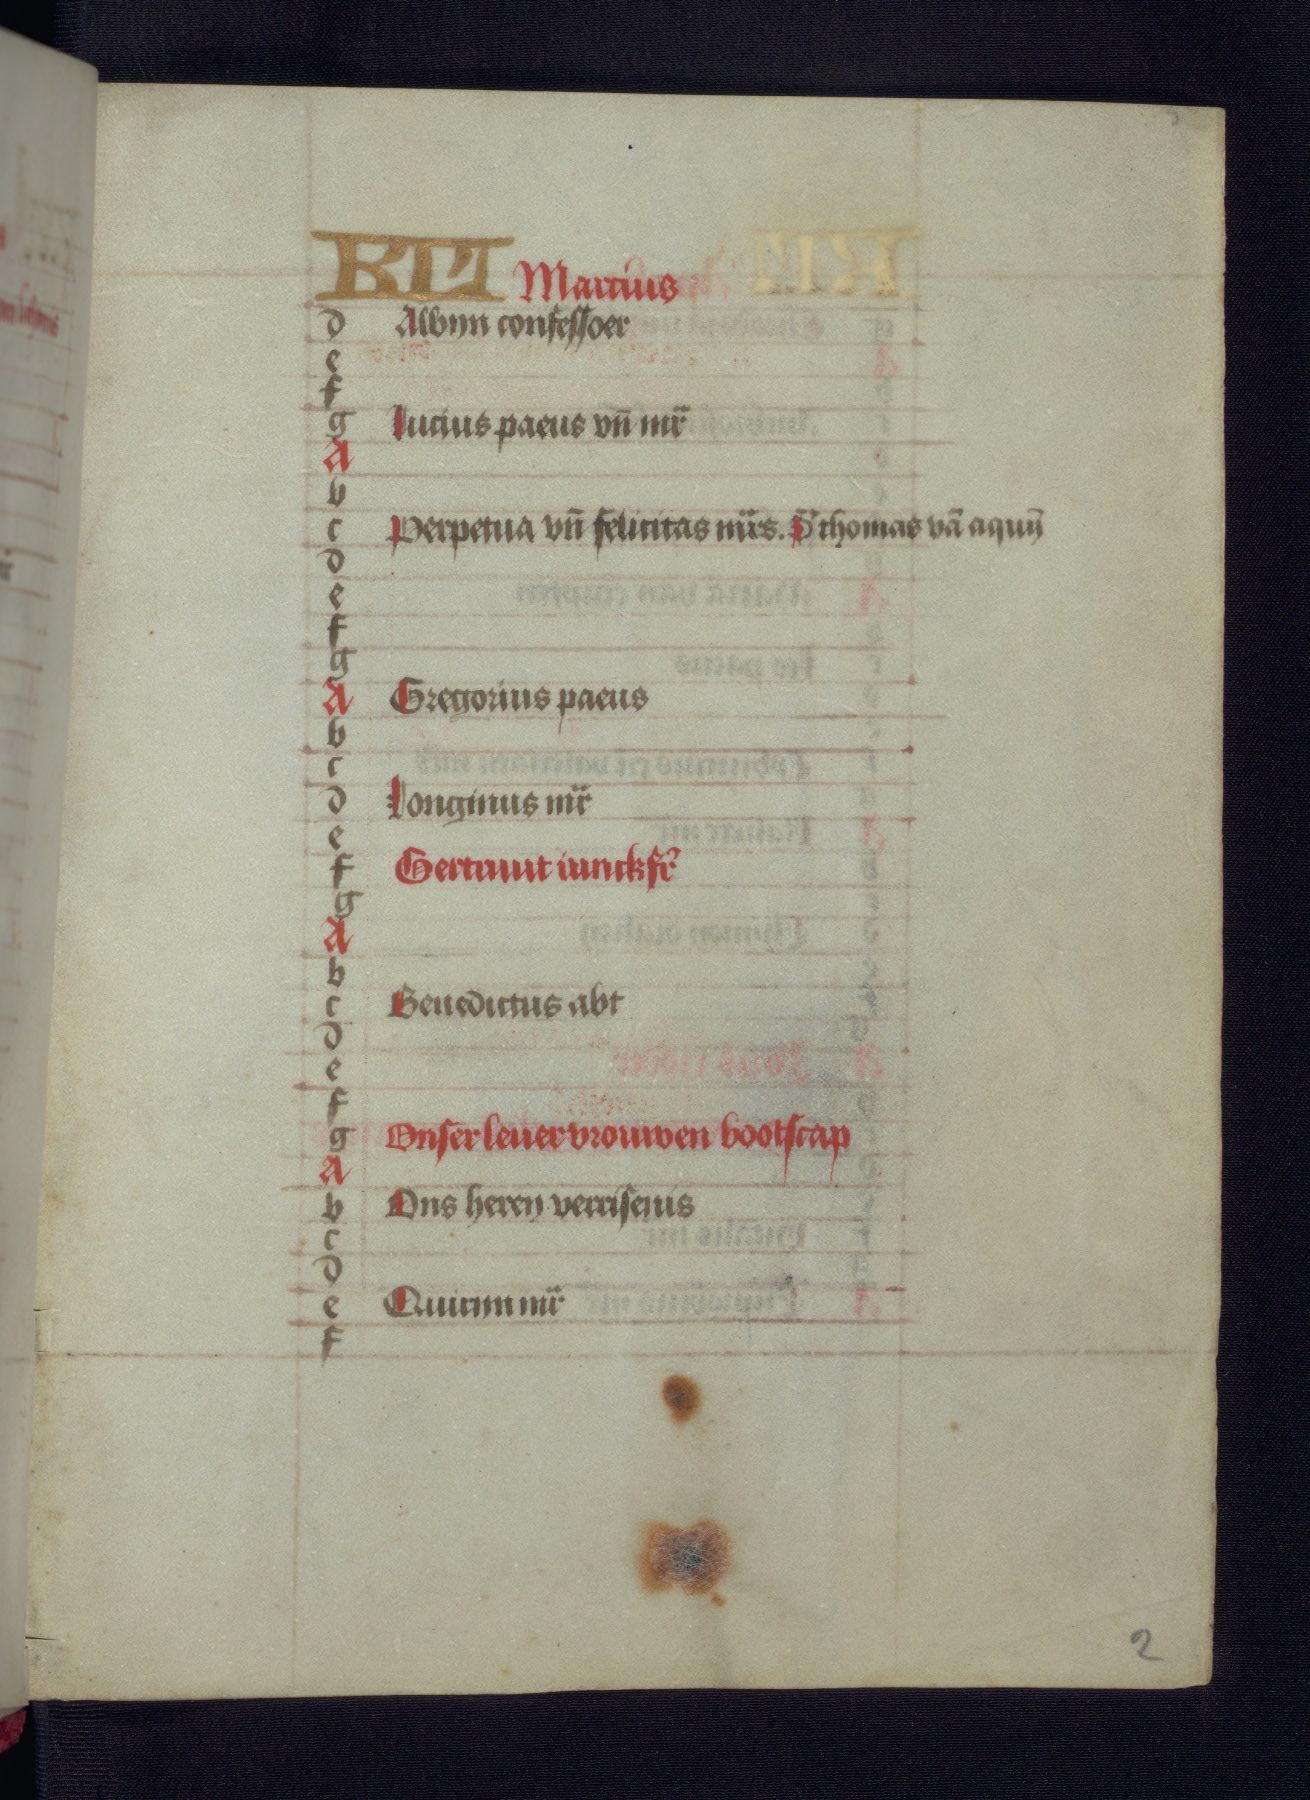 KL Martius
d Albijn confessoer
e
f
g Lucius paeus vn̄ mr̄
A
b
c Perpetua vn̄ felicitas mr̄s. S' thomas vā aquȳ
d
e
f
g
A Gregorius paeus
b
c
d Longinus mr̄
e
f Gertruut iunckfr̄
g
A
b
c Benedictus abt
d
e
f
g Onser leuer vrouwen bootscap
A
b Ons heren verrisenis
c
d
e Quirijn mr̄
f
2